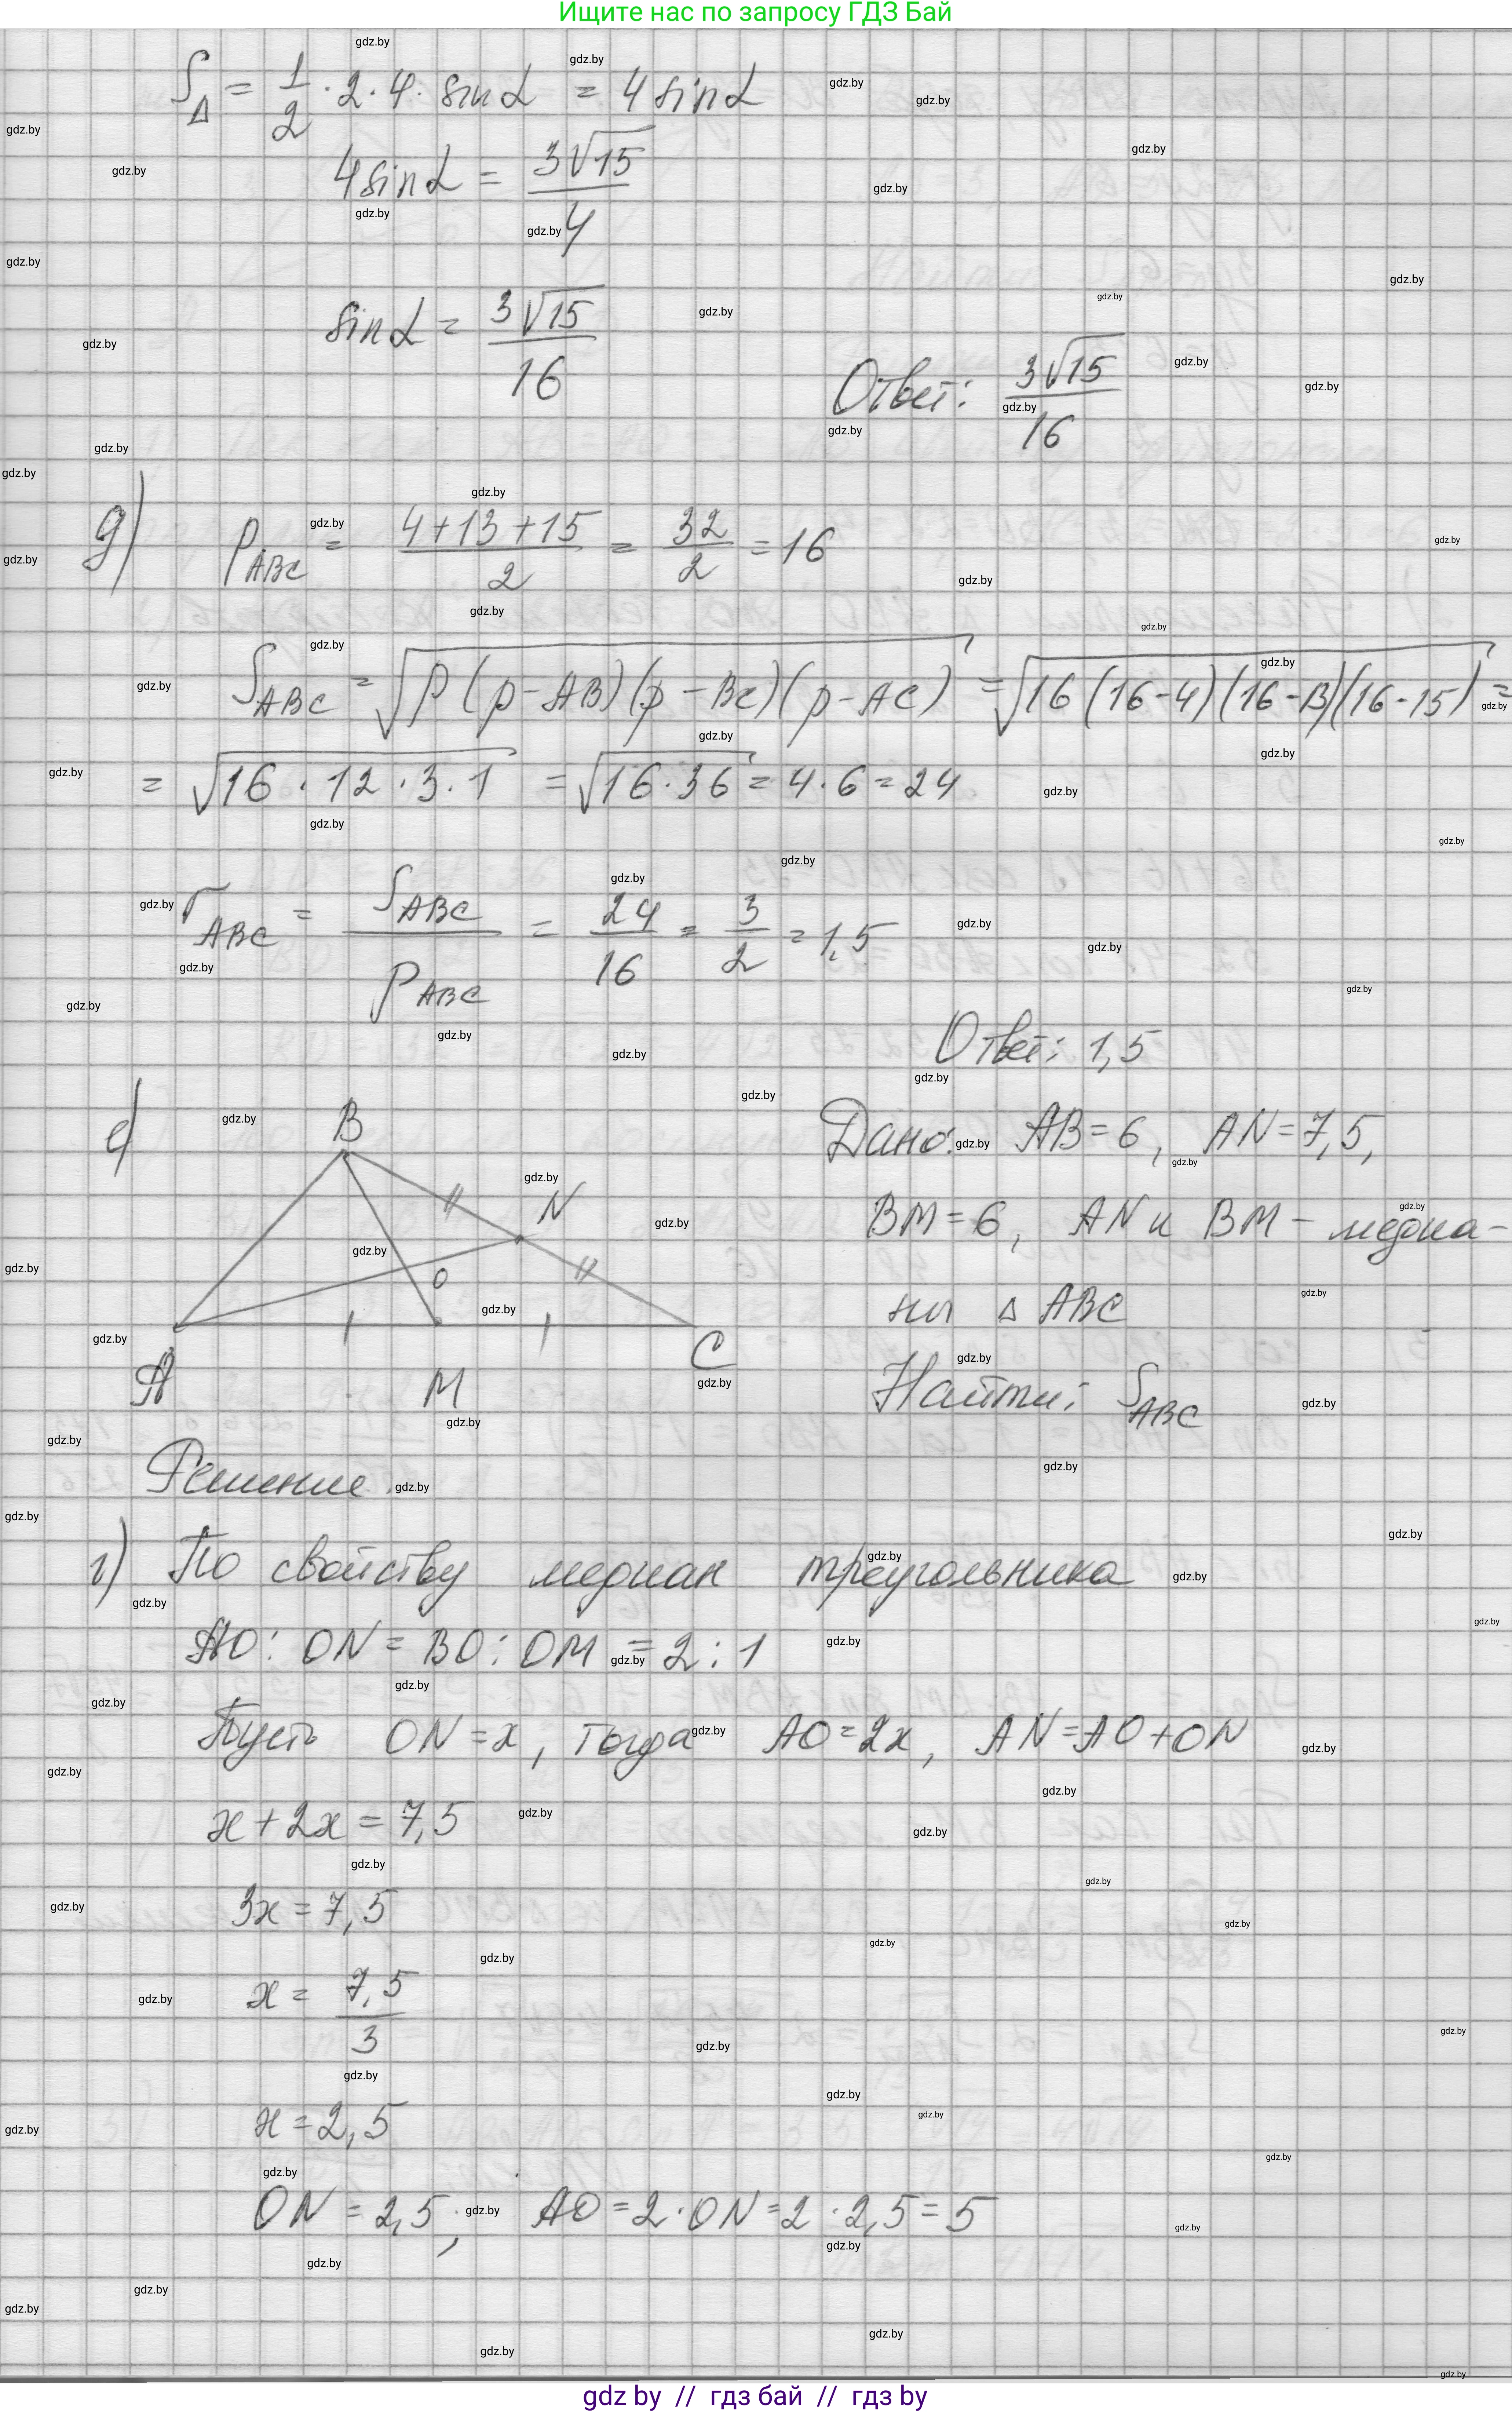 Ищите нас по запросу ГДЗ Бай
S△ = 1/2 · 2 · 4 · sin α = 4 sin α
4 sin α = 3√15/4
sin α = 3√15/16
Ответ: 3√15/16
д) p ABC = (4+13+15)/2 = 32/2 = 16
S ABC = √(p(p-AB)(p-BC)(p-AC)) = √(16(16-4)(16-13)(16-15)) =
= √(16 · 12 · 3 · 1) = √(16 · 36) = 4 · 6 = 24
r ABC = S ABC / p ABC = 24/16 = 3/2 = 1,5
Ответ: 1,5
е)
B
N
O
A
M
C
Дано: AB = 6, AN = 7,5,
BM = 6, AN и BM - медиа-
ны △ ABC
Найти: S ABC
Решение.
1) По свойству медиан треугольника
AO : ON = BO : OM = 2 : 1
Пусть ON = x, тогда AO = 2x, AN = AO + ON
x + 2x = 7,5
3x = 7,5
x = 7,5/3
x = 2,5
ON = 2,5; AO = 2 · ON = 2 · 2,5 = 5
gdz by // гдз бай // гдз by